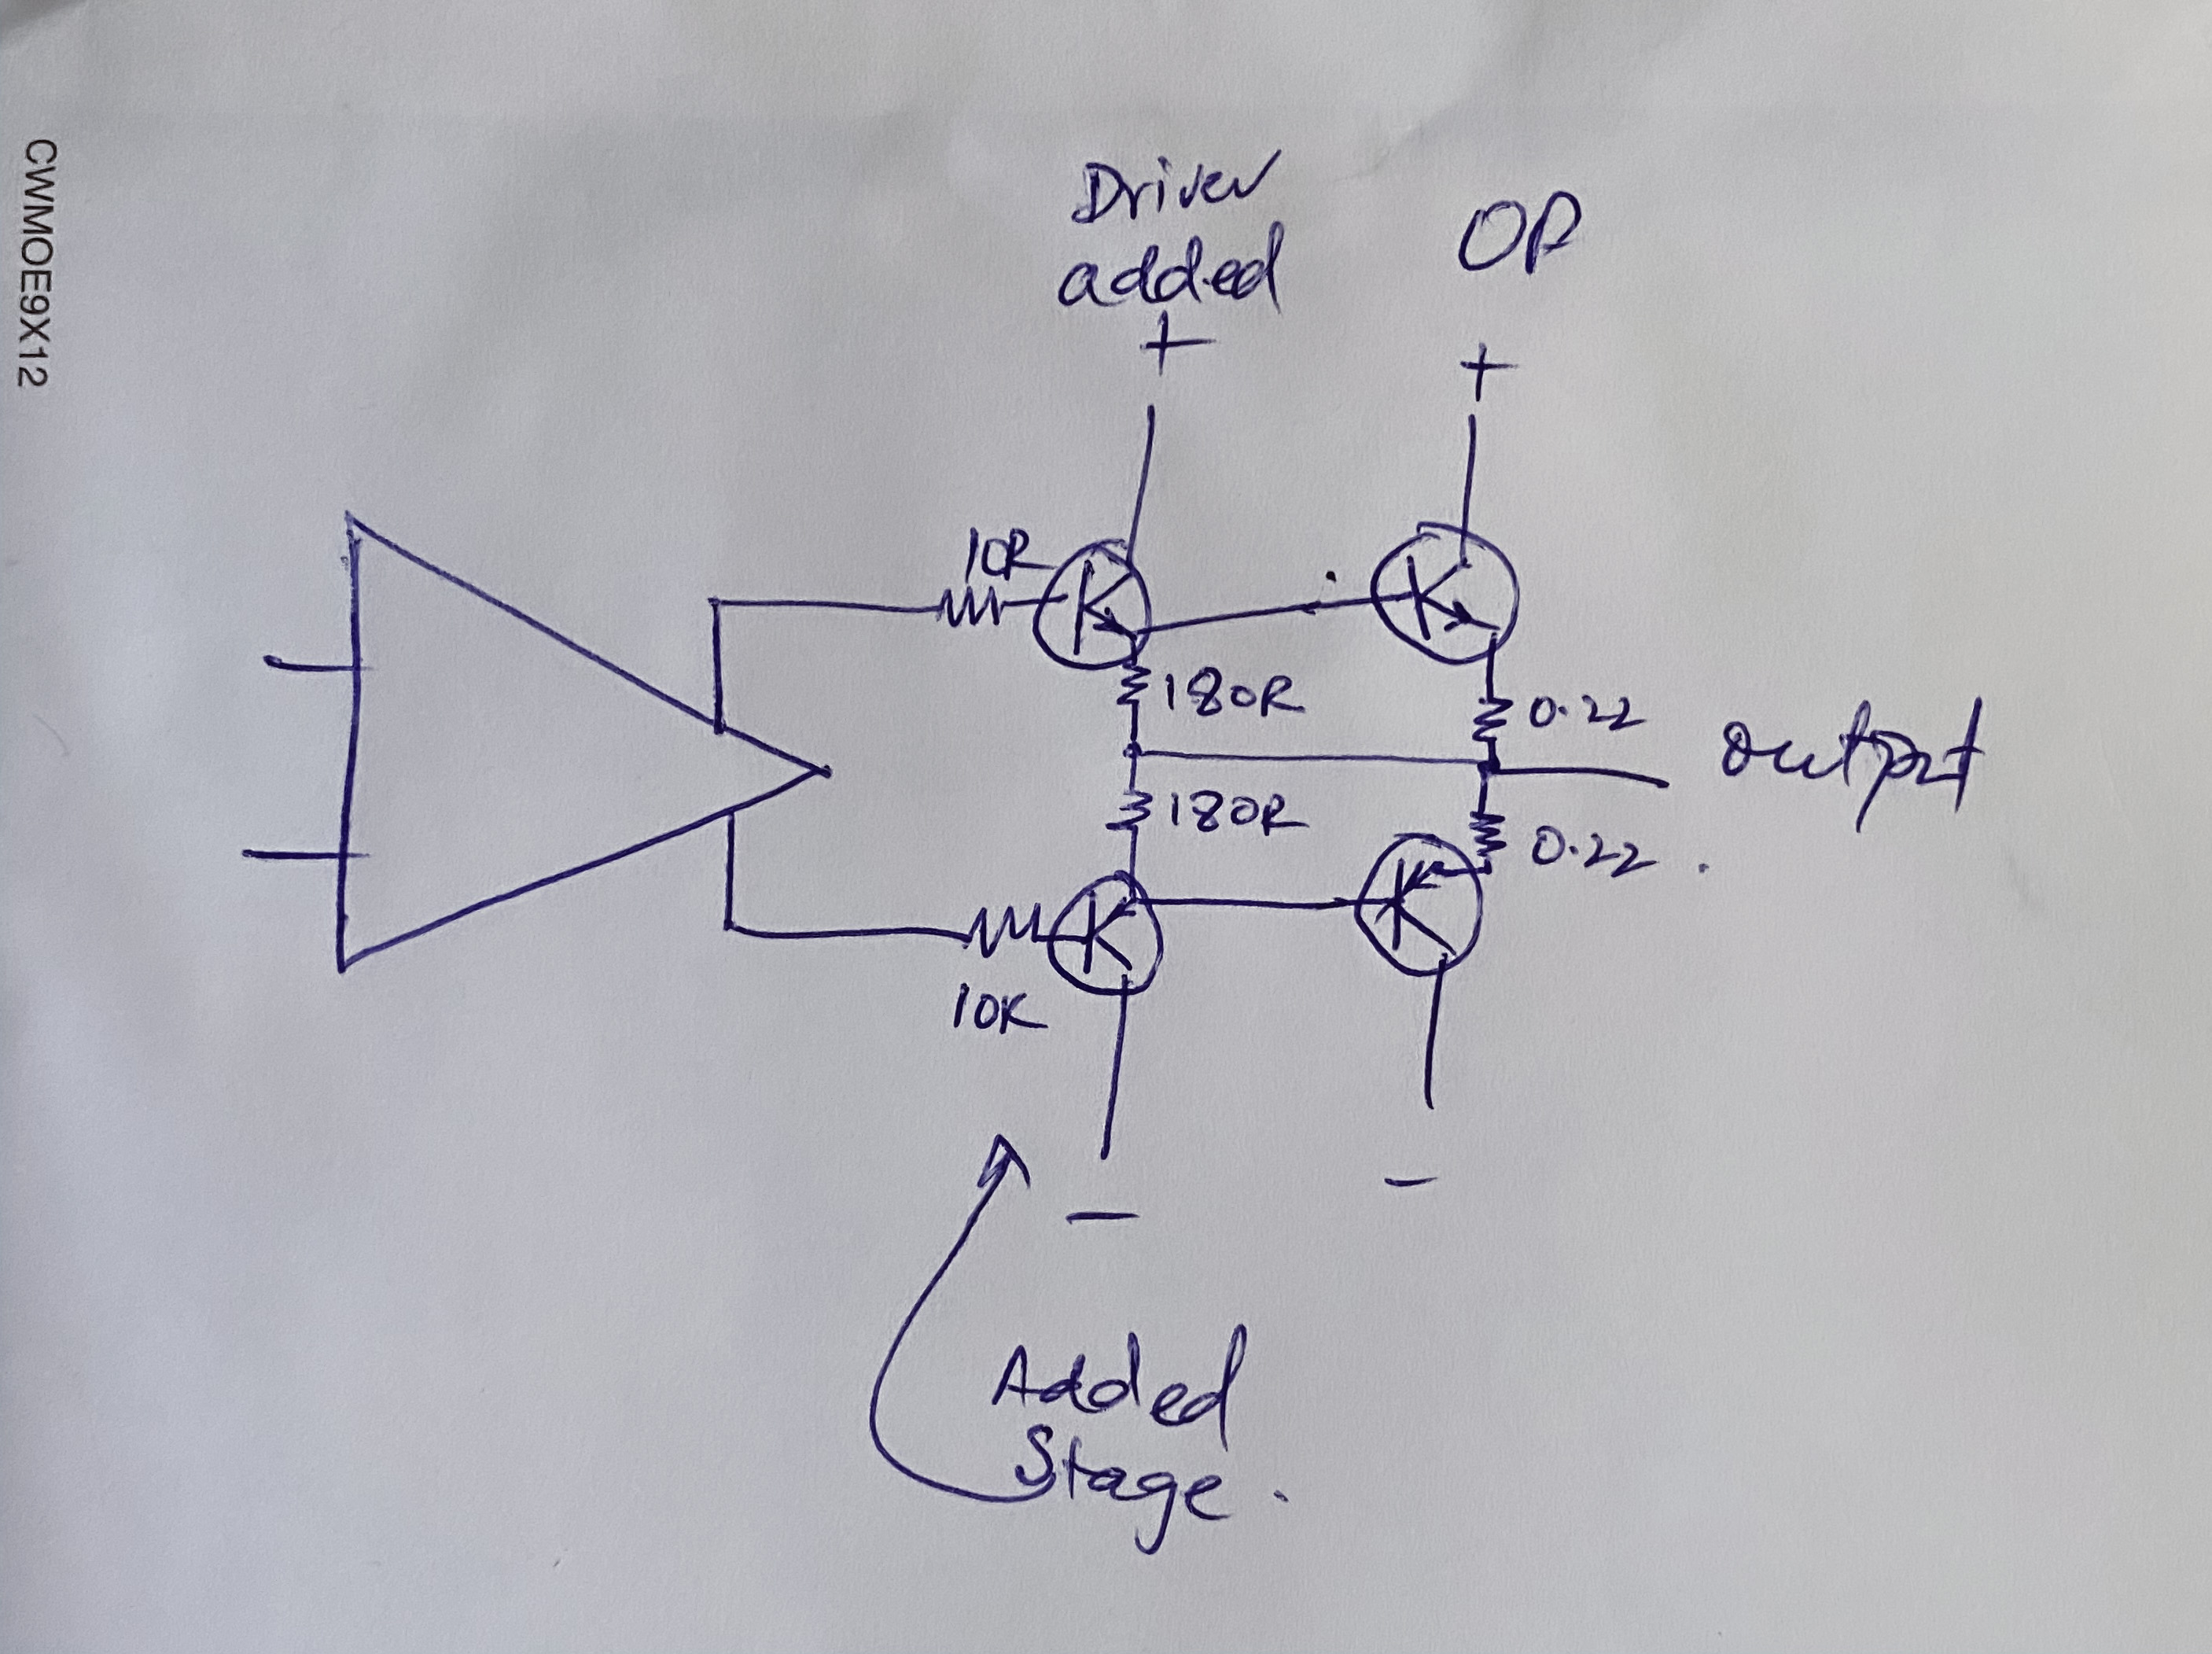 CWMOE9X12
Driver
added
OP
+
+
10R
180R
0.22
output
180R
0.22.
10K
-
-
Added
Stage.